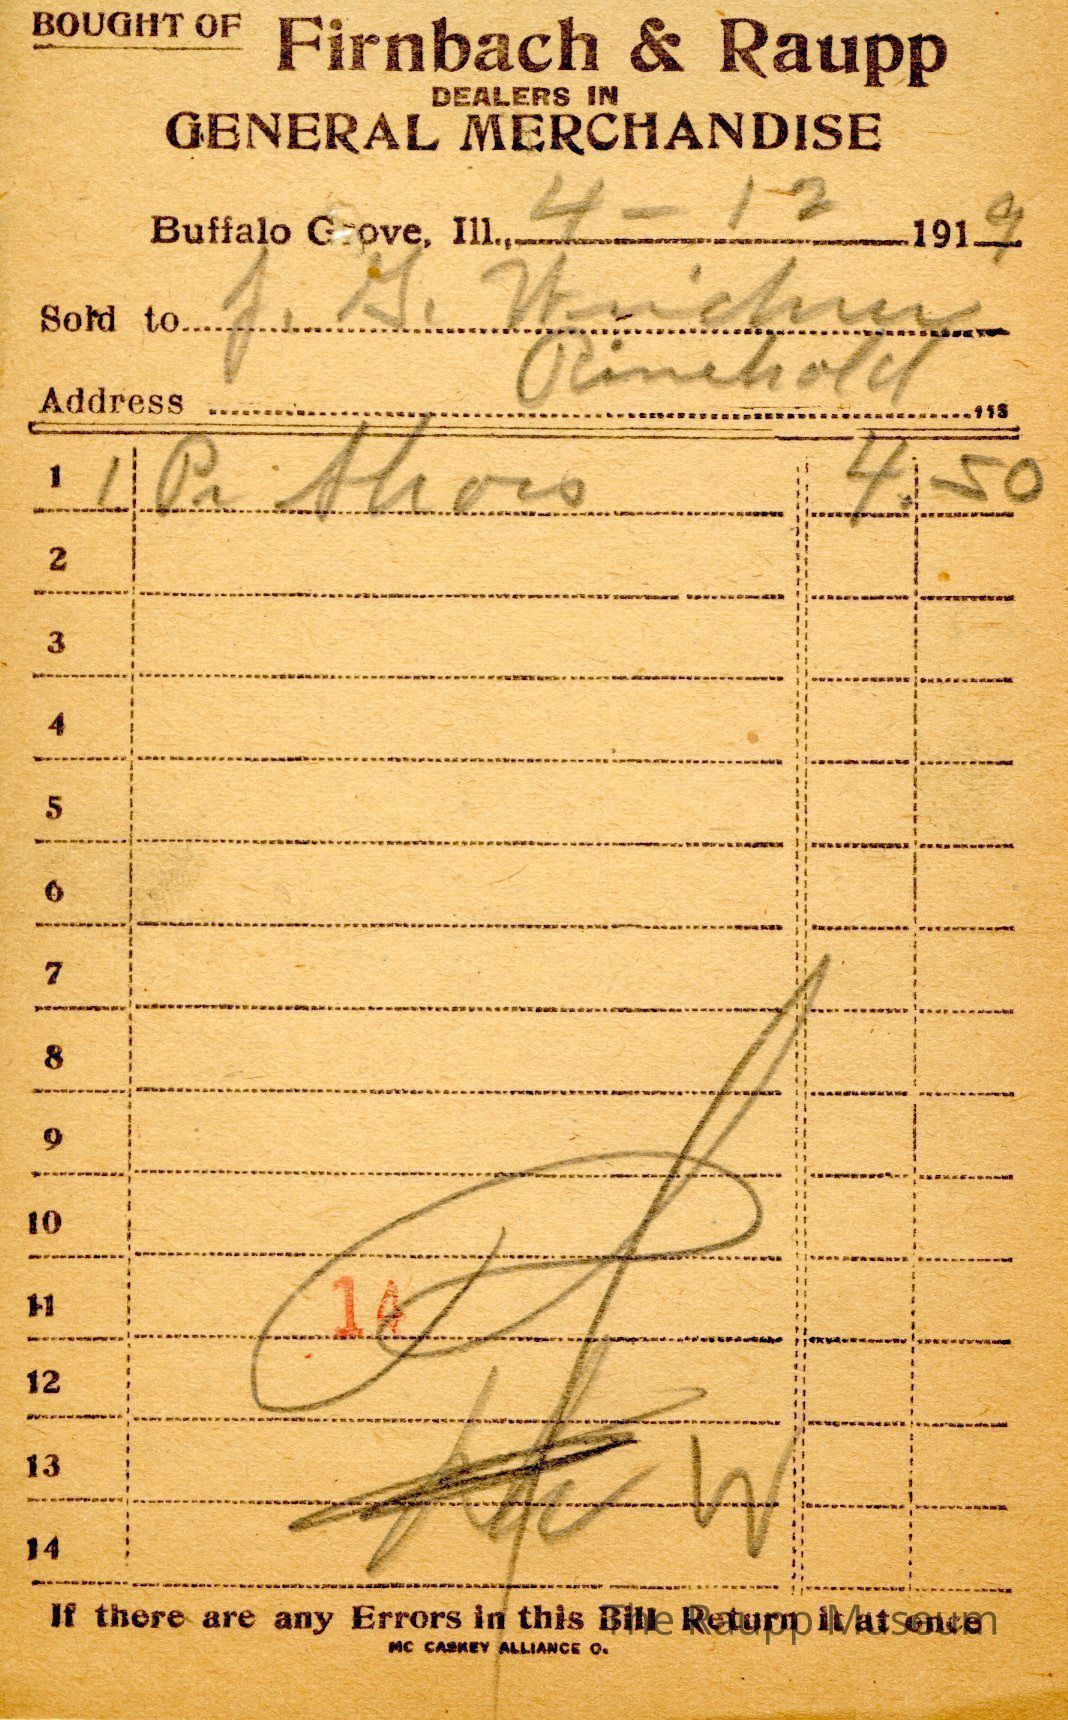 BOUGHT OF Firnbach & Raupp
DEALERS IN
GENERAL MERCHANDISE
Buffalo Grove, Ill., 4 - 12 1919
Sold to J. G.
Rinehold
Address
1 1 Pr Shoes 4.50
2
3
4
5
6
7
8
9
10
11 14
12
13 W
14
If there are any Errors in this Bill Return it at once
The Raupp Museum
MC CASKEY ALLIANCE O.